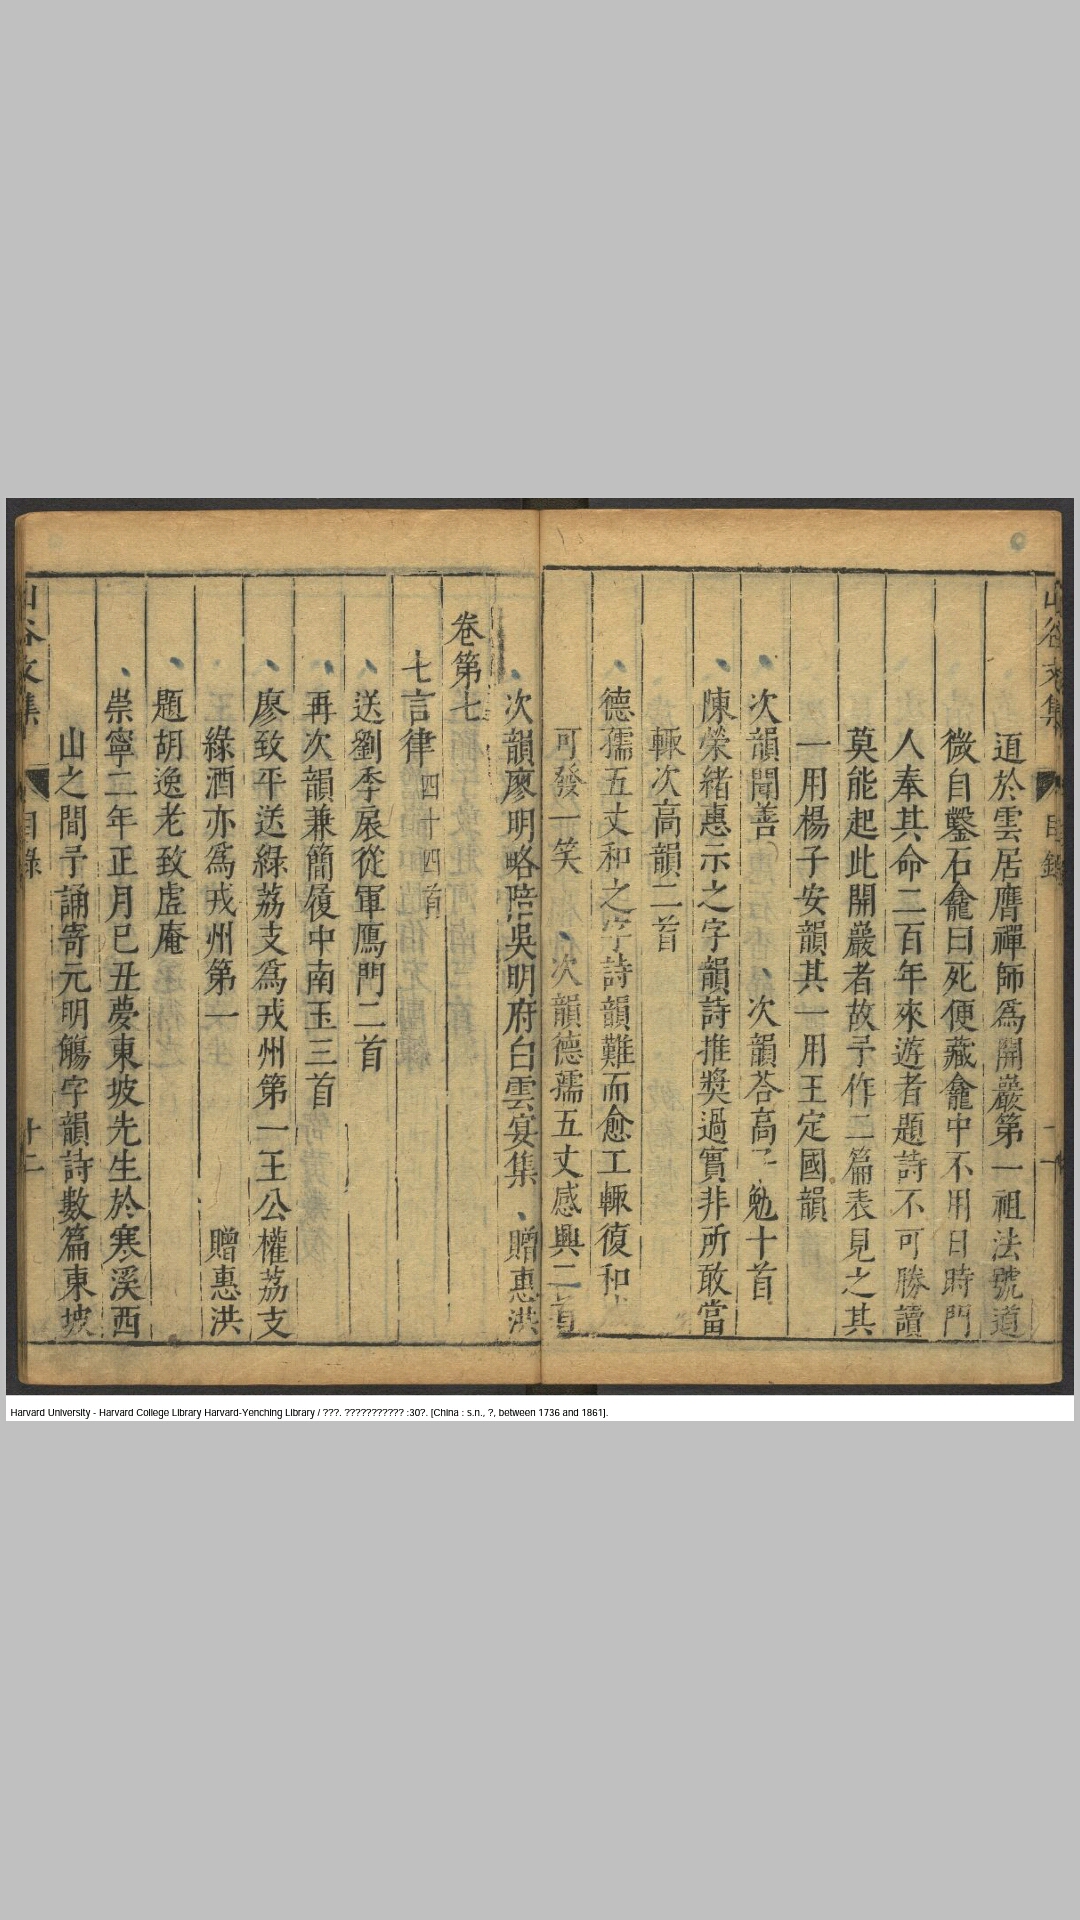 山谷文集
目錄
道於雲居膺禪師爲開巖第一祖法號道
微自鑿石龕曰死便藏龕中不用日時門
人奉其命二百年來遊者題詩不可勝讀
莫能起此開巖者故予作二篇表見之其
一用楊子安韻其一用王定國韻
次韻聞善 次韻荅高子勉十首
陳榮緒惠示之字韻詩推奬過實非所敢當
輒次高韻二首
德孺五丈和之字詩韻難而愈工輒復和
可發一笑 次韻德孺五丈感興二首
次韻廖明略陪吳明府白雲宴集 贈惠洪
卷第七
七言律 四十四首
送劉季展從軍鴈門二首
再次韻兼簡履中南玉三首
廖致平送綠荔支爲戎州第一王公權荔支
綠酒亦爲戎州第一 贈惠洪
題胡逸老致虛庵
崇寧二年正月己丑夢東坡先生於寒溪西
山之間予誦寄元明觴字韻詩數篇東坡
山谷文集
目錄
十二
Harvard University - Harvard College Library Harvard-Yenching Library / ???. ??????????? :30?. [China : s.n., ?, between 1736 and 1861].